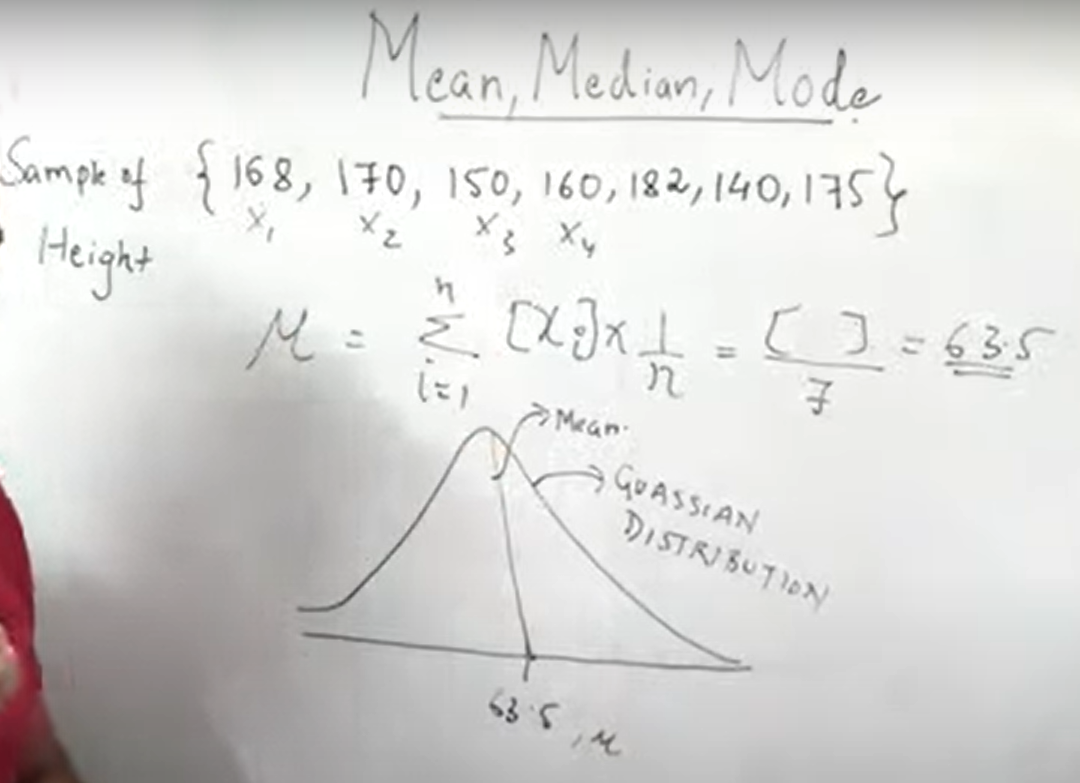 Mean, Median, Mode
Sample of { 168, 170, 150, 160, 182, 140, 175 }
x₁ x₂ x₃ x₄
Height
μ = n Σ i=1 [xi] x 1/n = [ ]/7 = 63.5
Mean.
GUASSIAN
DISTRIBUTION
63.5, μ